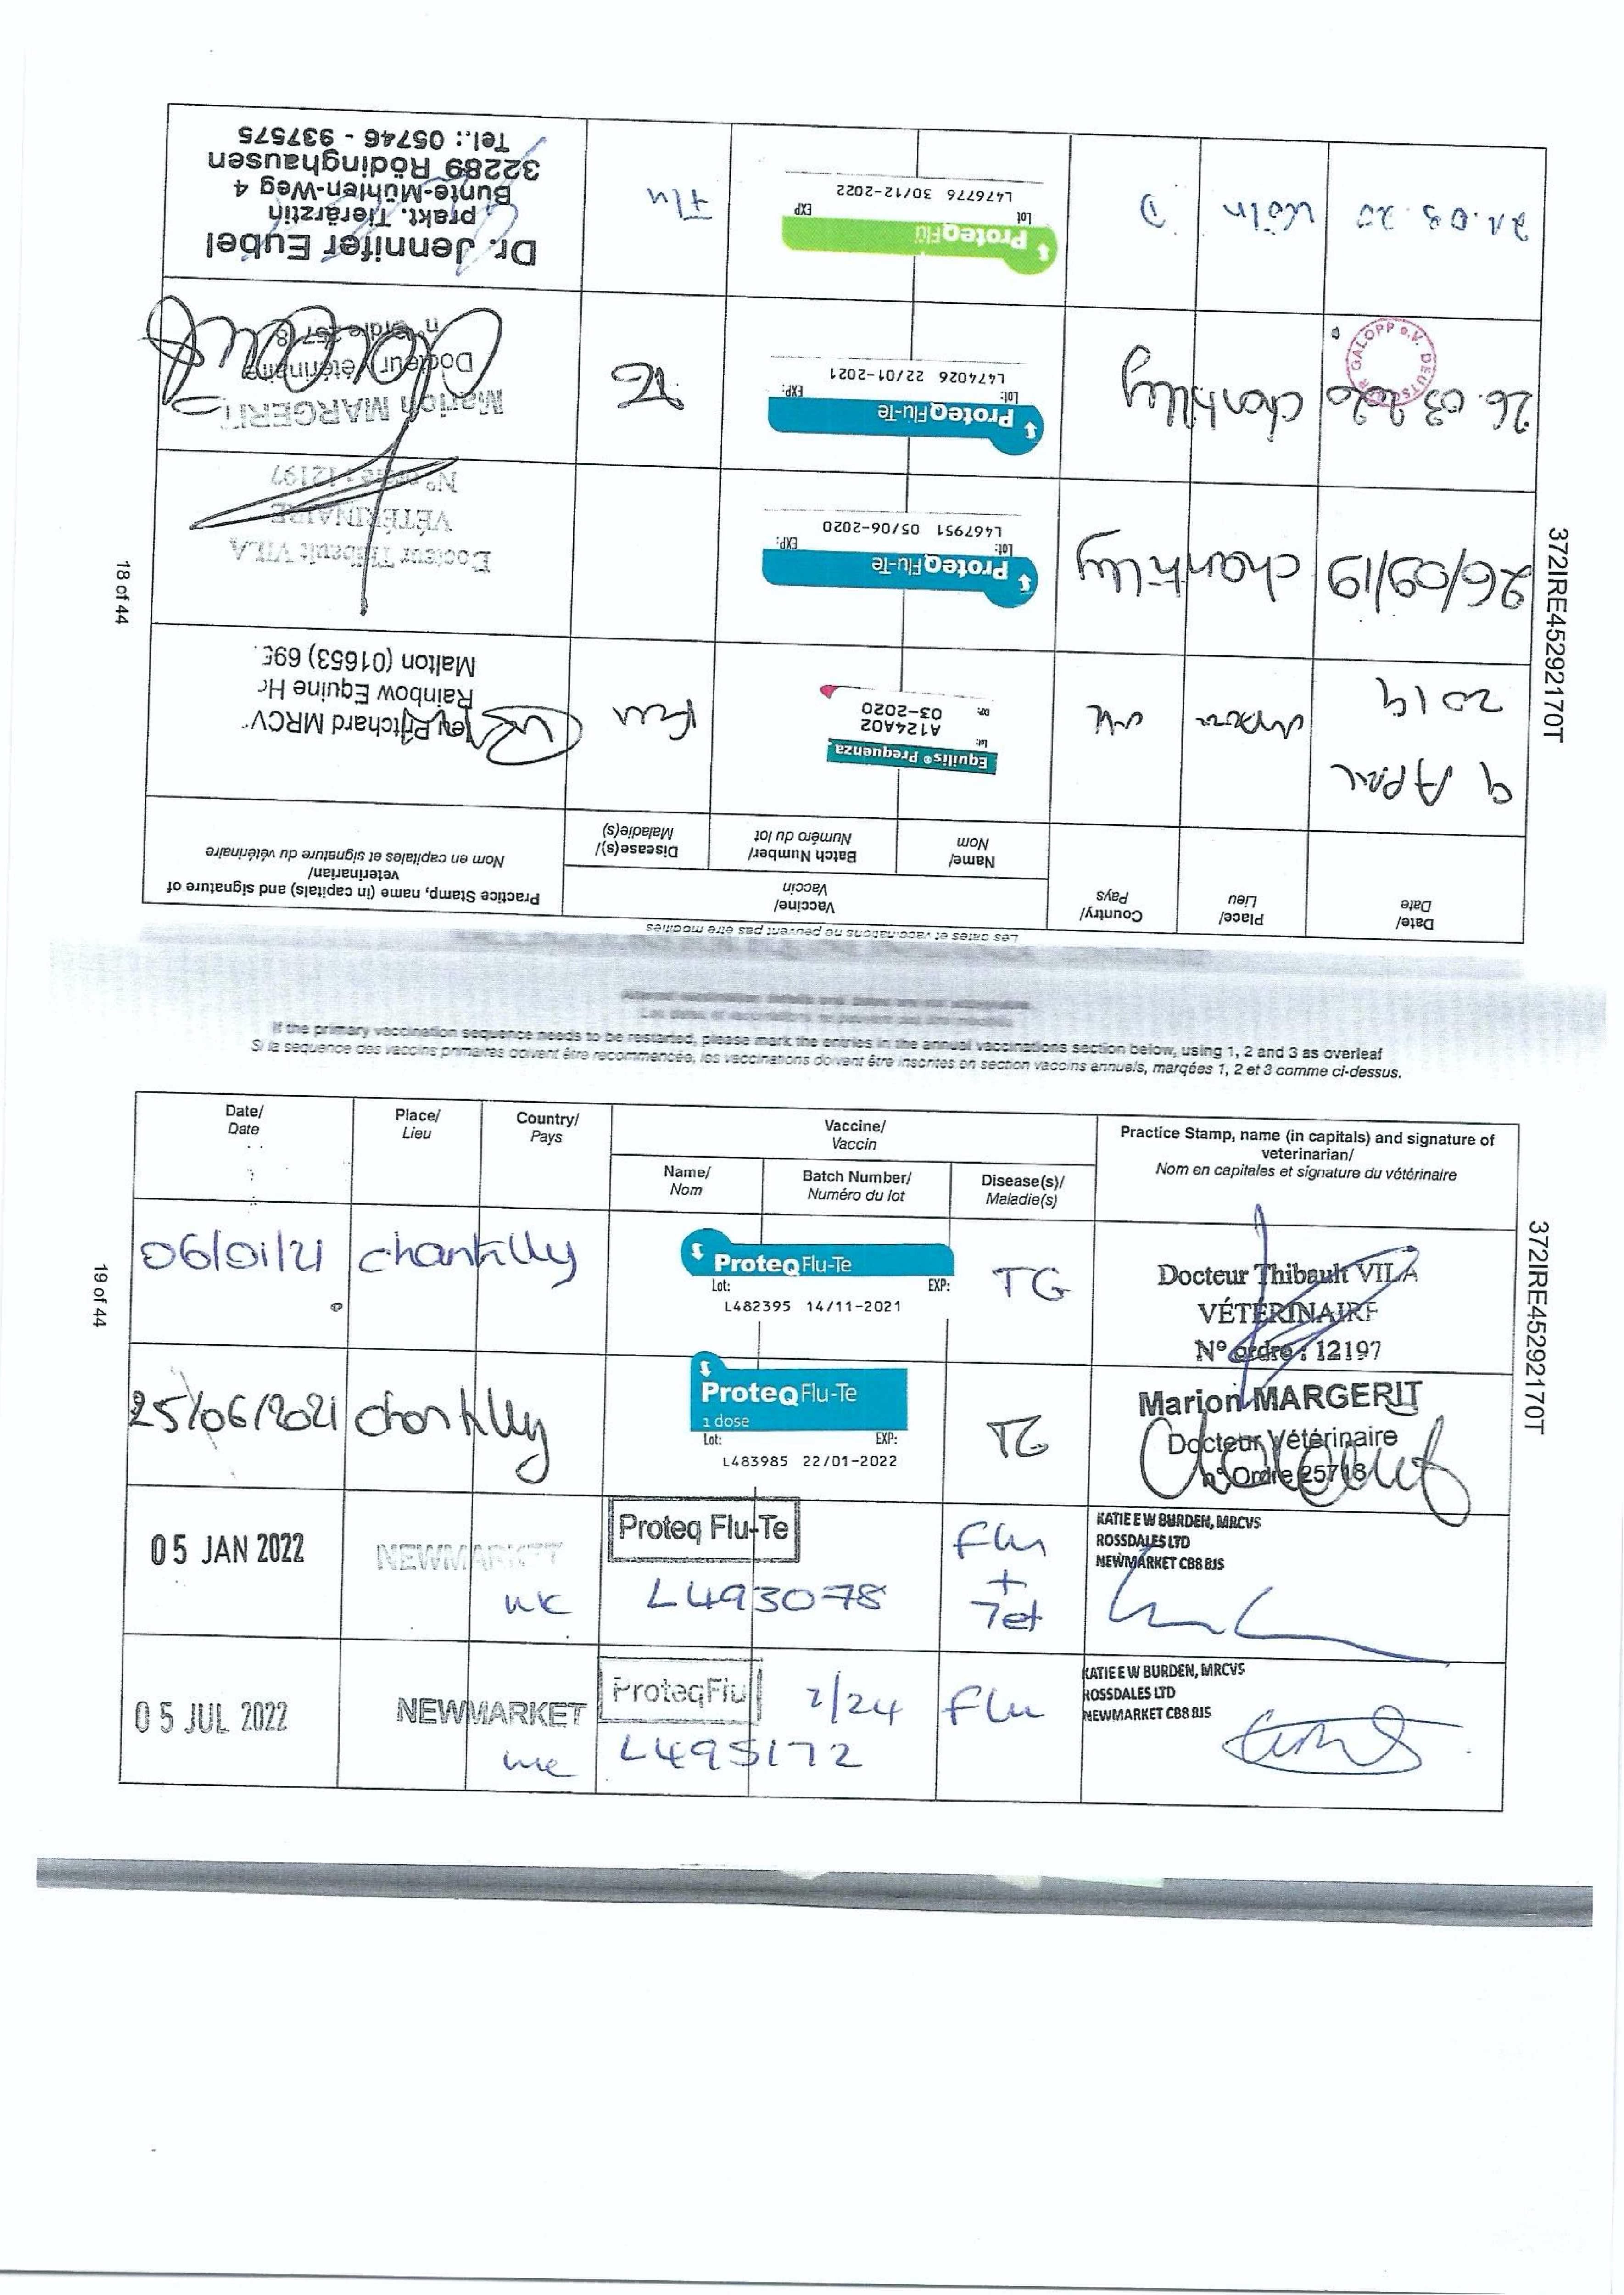 Les dates et vaccinations ne peuvent pas être modifiées
Date/
Date
Place/
Lieu
Country/
Pays
Vaccine/
Vaccin
Name/
Nom
Batch Number/
Numéro du lot
Disease(s)/
Maladie(s)
Practice Stamp, name (in capitals) and signature of
veterinarian/
Nom en capitales et signature du vétérinaire
9 APRIL
2019
UK
Equilis® Prequenza
lot:
A124A02
03-2020
Flu
Pritchard MRCV
Rainbow Equine H
Malton (01653) 695
26/09/19
chantilly
ProteqFlu-Te
Lot: EXP:
L467951 05/06-2020
Docteur Thibault VILA
VÉTÉRINAIRE
N° ordre : 12197
26.03.2020
chantilly
GALOPP e.V. DEUTS
ProteqFlu-Te
Lot: EXP:
L474026 22/01-2021
TG
Marion MARGERIT
Docteur Vétérinaire
n° Ordre 25718
21.08.20
Köln
D
ProteqFlu
Lot EXP
L476776 30/12-2022
Flu
Dr. Jennifer Eubel
prakt. Tierärztin
Bunte-Mühlen-Weg 4
32289 Rödinghausen
Tel.: 05746 - 937575
18 of 44
372IRE45292170T
If the primary vaccination sequence needs to be restarted, please mark the entries in the annual vaccinations section below, using 1, 2 and 3 as overleaf
Si la sequence des vaccins primaires doivent être recommencée, les vaccinations doivent être inscrites en section vaccins annuels, marqées 1, 2 et 3 comme ci-dessus.
Date/
Date
Place/
Lieu
Country/
Pays
Vaccine/
Vaccin
Name/
Nom
Batch Number/
Numéro du lot
Disease(s)/
Maladie(s)
Practice Stamp, name (in capitals) and signature of
veterinarian/
Nom en capitales et signature du vétérinaire
06/01/21
chantilly
ProteqFlu-Te
Lot: EXP:
L482395 14/11-2021
TG
Docteur Thibault VILA
VÉTÉRINAIRE
N° ordre : 12197
25/06/2021
chantilly
ProteqFlu-Te
1 dose
Lot: EXP:
L483985 22/01-2022
TG
Marion MARGERIT
Docteur Vétérinaire
n° Ordre 25718
05 JAN 2022
NEWMARKET
UK
Proteq Flu-Te
L493078
Flu
+
Tet
KATIE E W BURDEN, MRCVS
ROSSDALES LTD
NEWMARKET CB8 8JS
05 JUL 2022
NEWMARKET
UK
ProteqFlu
2/24
L495172
Flu
KATIE E W BURDEN, MRCVS
ROSSDALES LTD
NEWMARKET CB8 8JS
19 of 44
372IRE45292170T